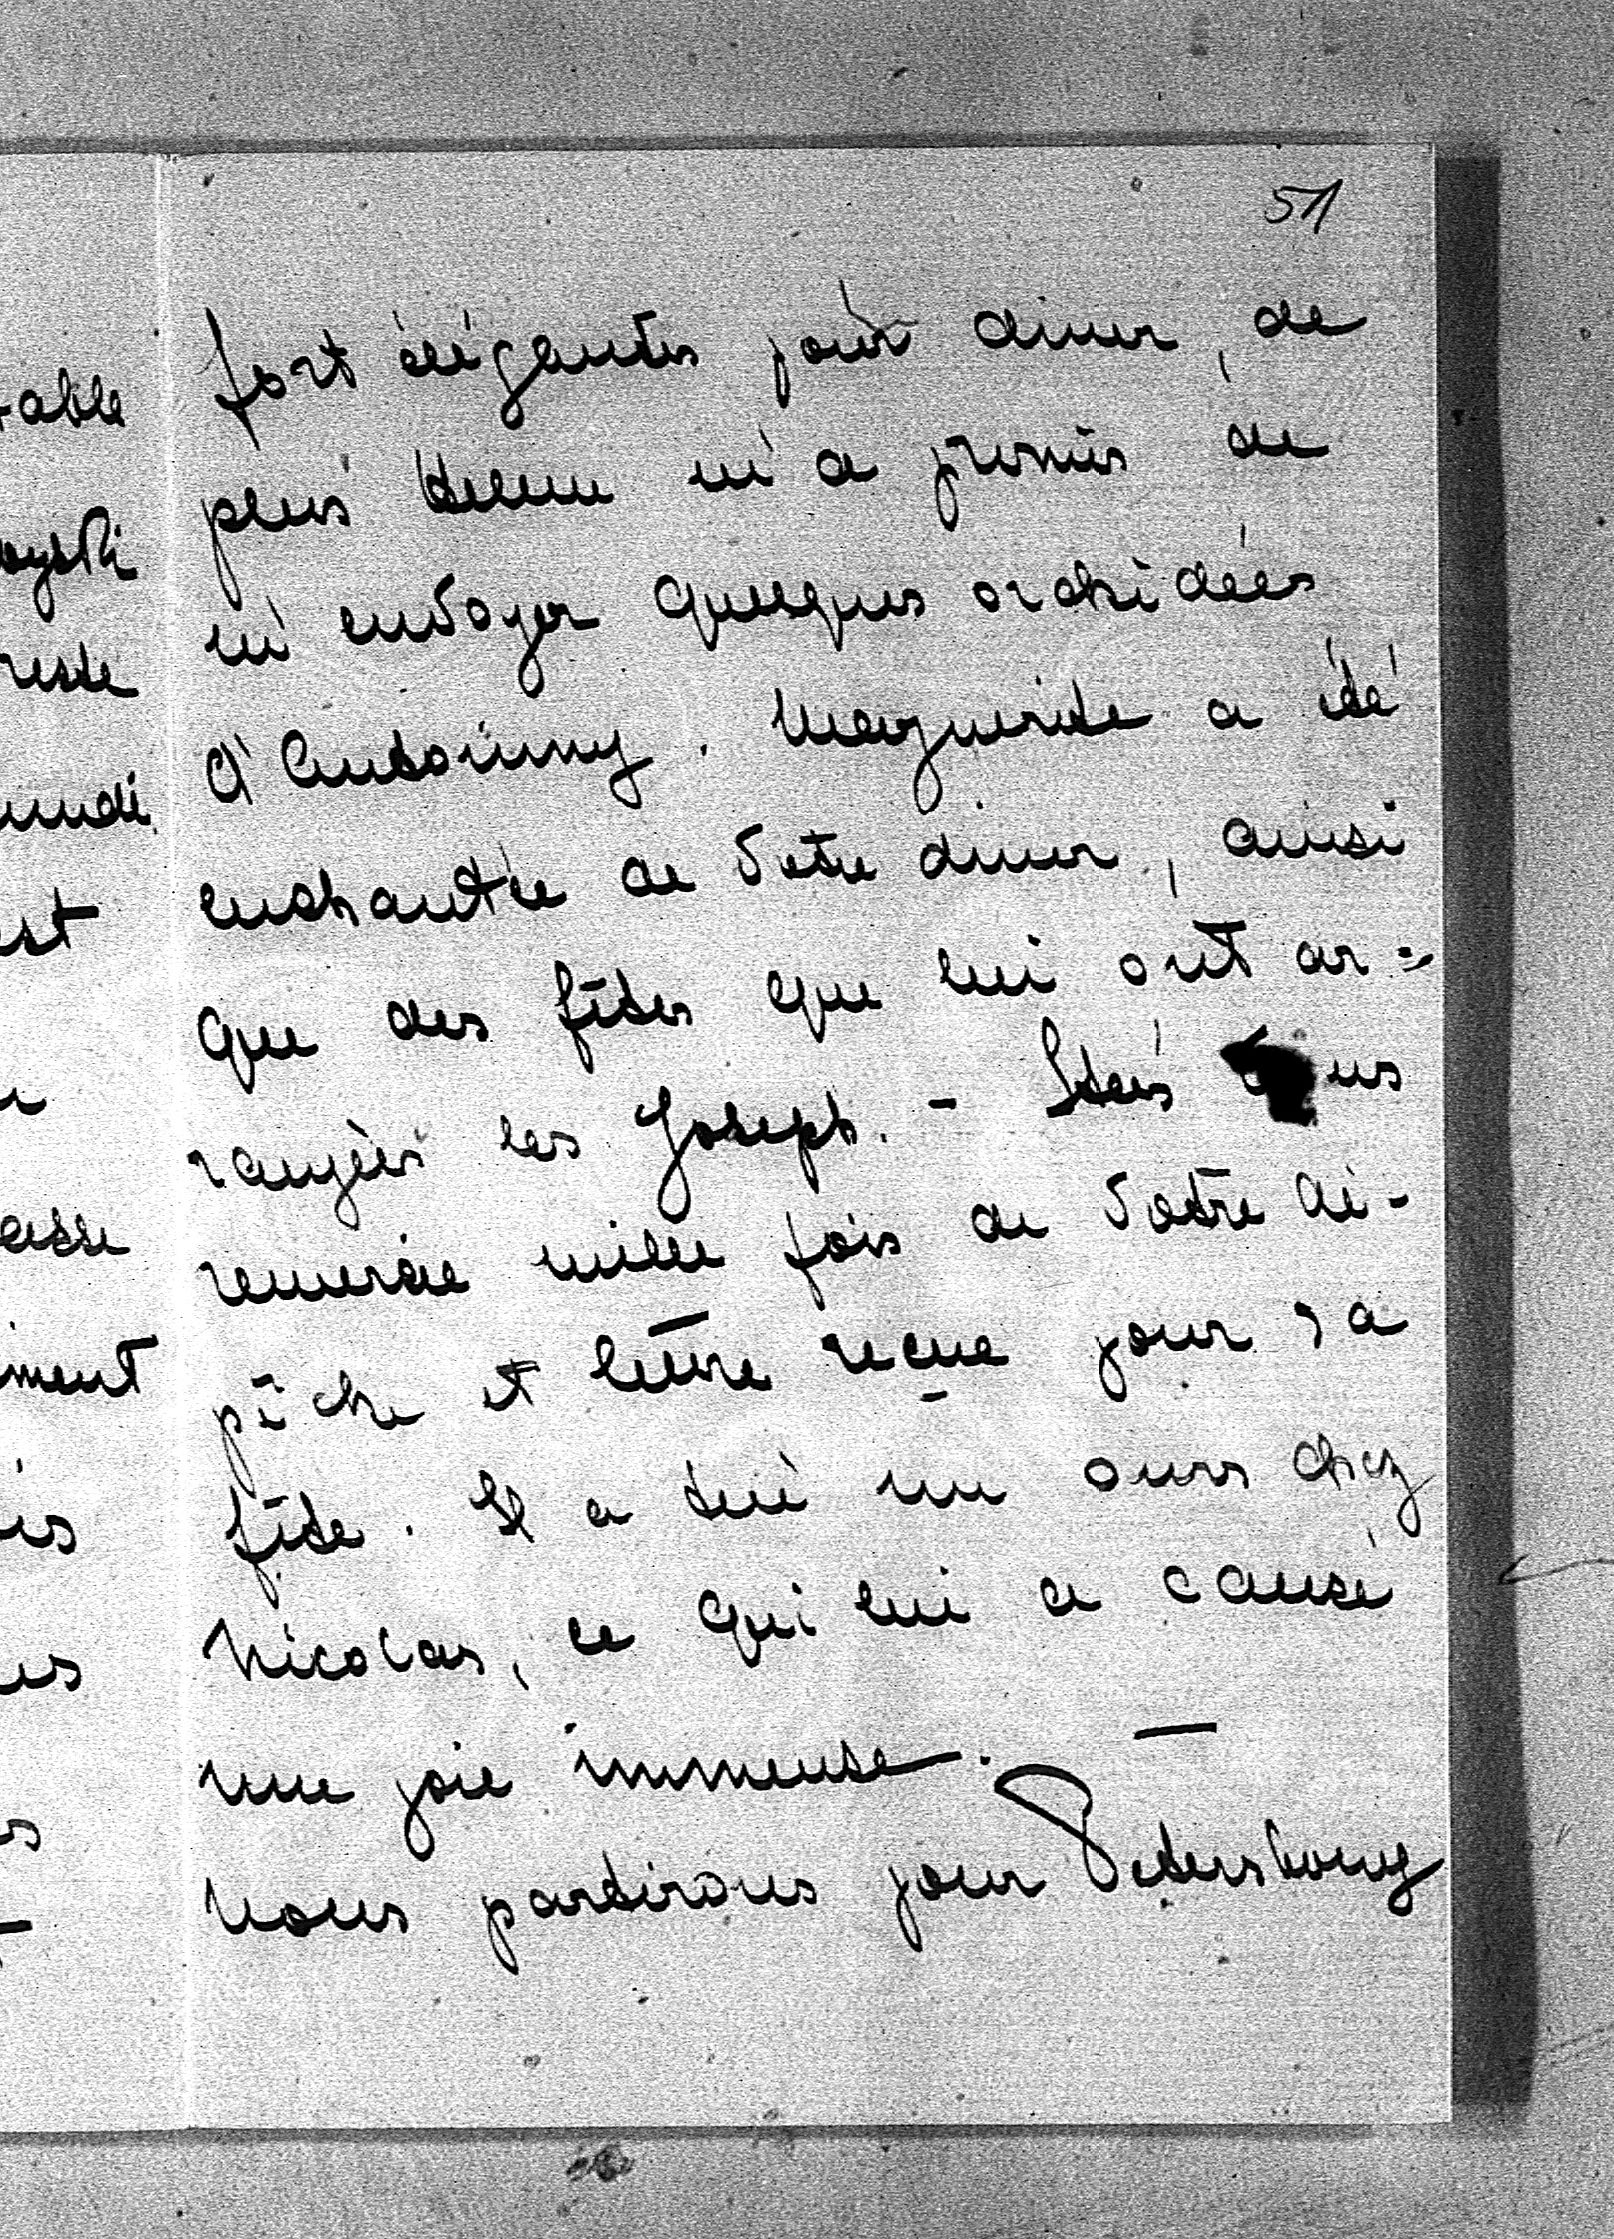 51
fort élégantes pour diner, de
plus Helene m'a promis de
m'envoyer quelques orchidées
d'Antoniny. Marguerite a été
enchantée de Votre diner, ainsi
que des fêtes que lui ont ar=
rangées les Joseph. - Staś Vous
remercie mille fois de Votre dé-
pêche et lettre reçue pour sa
fête. Il a tué un ours chez
Nicolas, ce qui lui a causé
une joie immense. —
Nous partirons pour Petersbourg
table
oyski
reste
undi
est
esse
iment
is
us